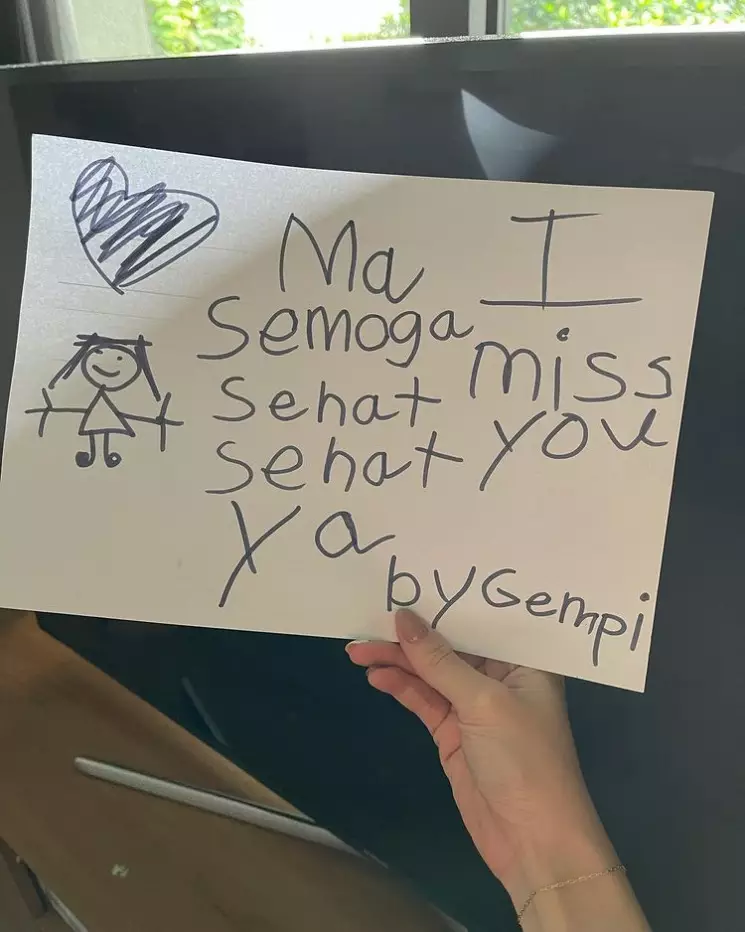 Ma
Semoga
Sehat
Sehat
Ya
I
miss
you
by Gempi